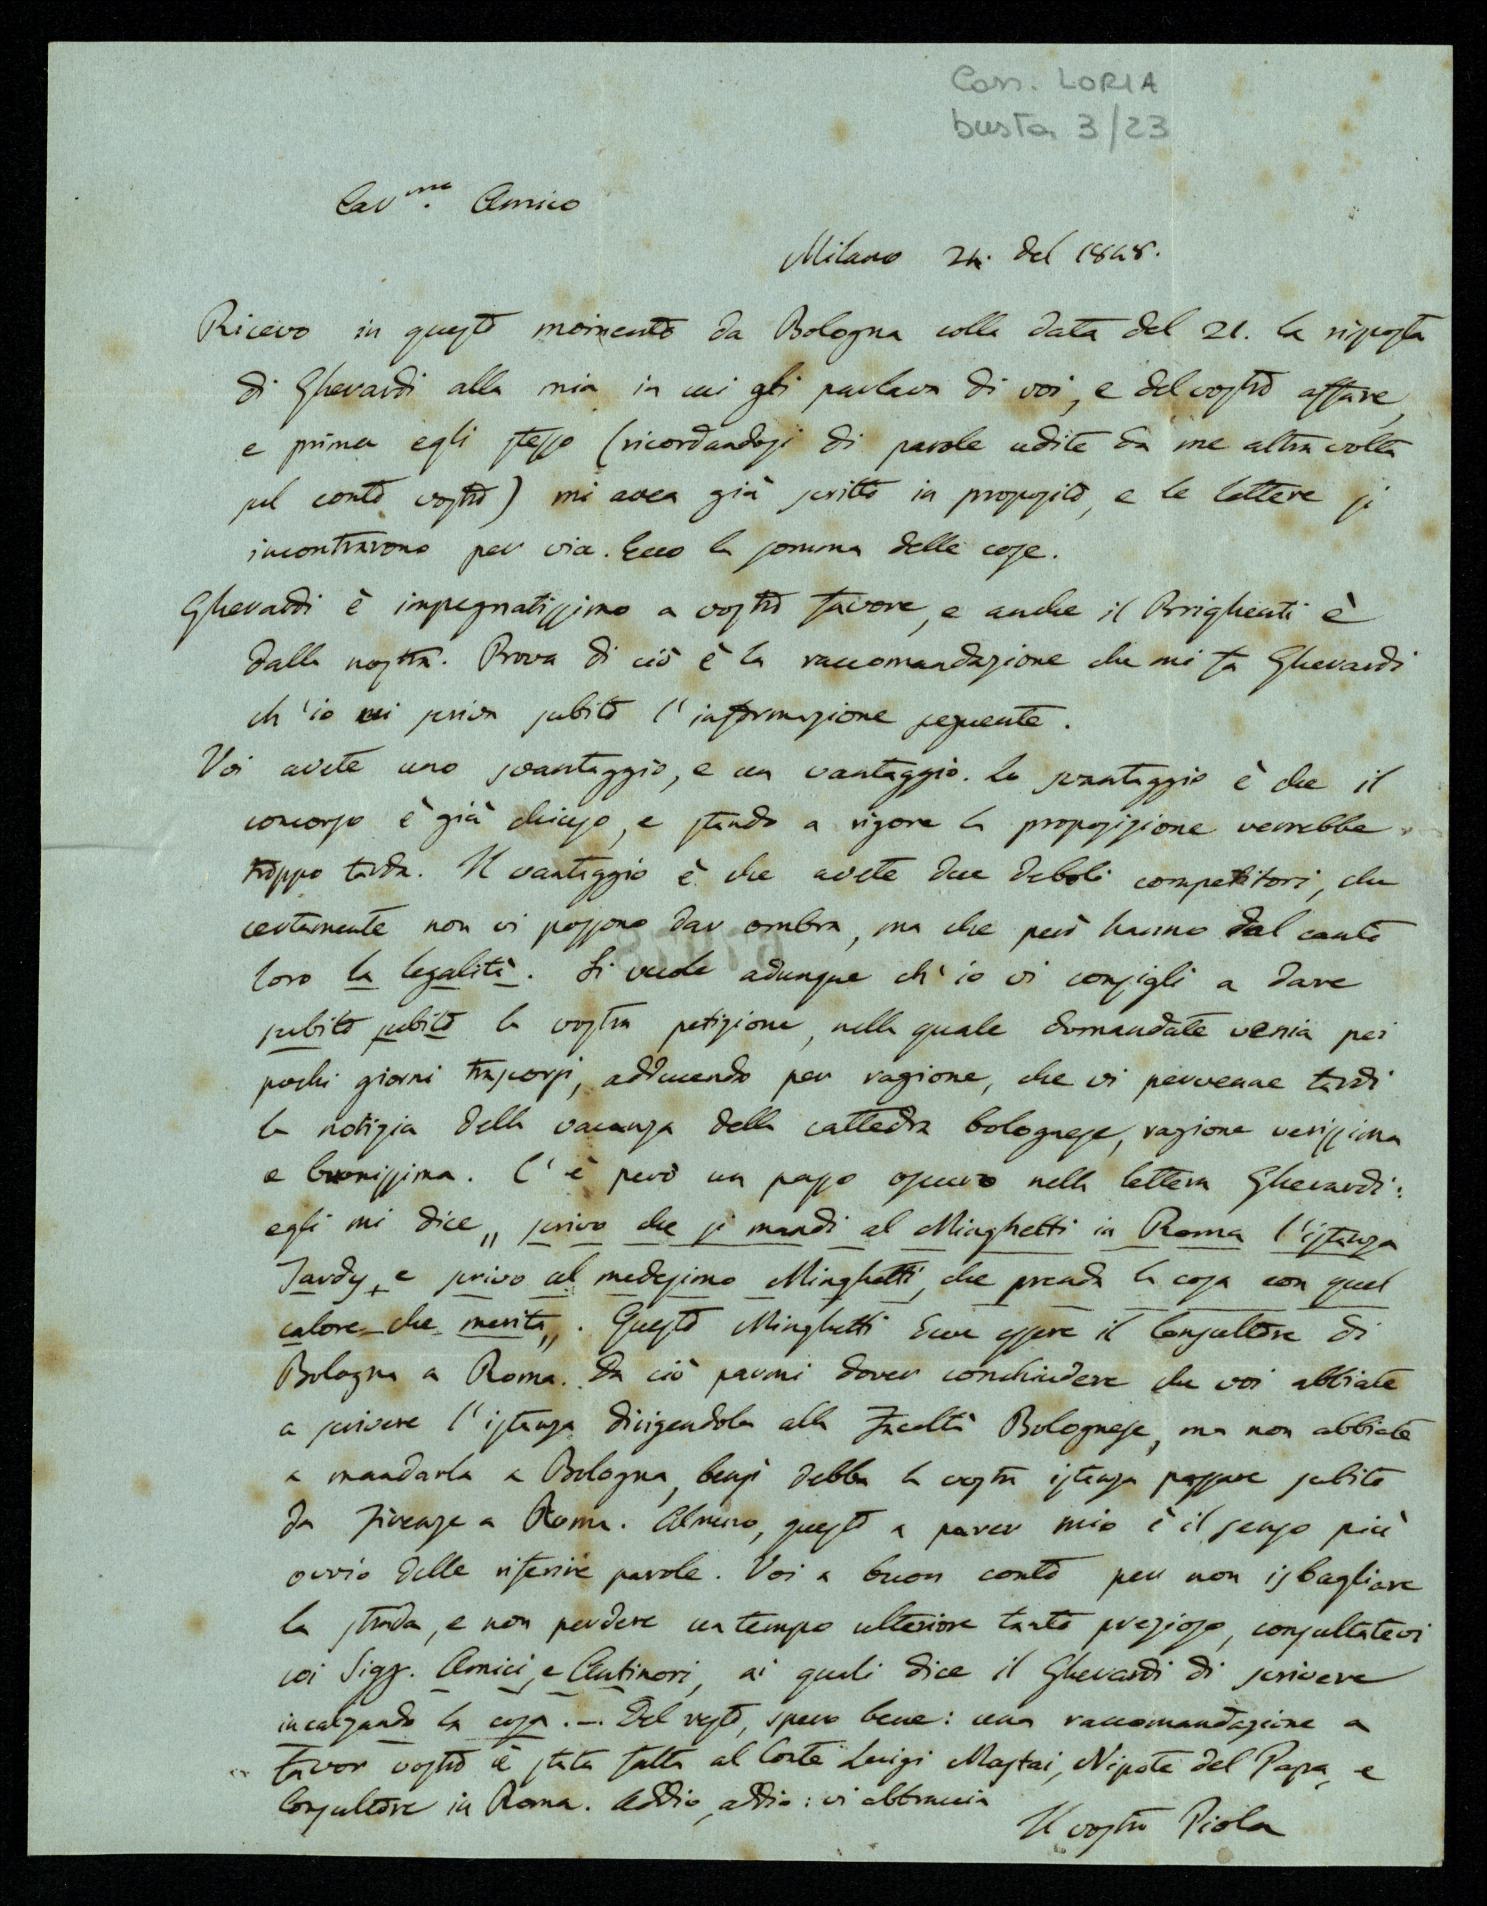 Corr. LORIA
busta 3/23
Car.mo Amico
Milano 24. del 1848.
Ricevo in questo momento da Bologna colla data del 21. la risposta
di Gherardi alla mia in cui gli parlava di voi, e del vostro affare,
e prima egli stesso (ricordandosi di parole udite da me altra volta
sul conto vostro) mi avea già scritto in proposito, e le lettere si
incontrarono per via. Ecco la somma delle cose.
Gherardi è impegnatissimo a vostro favore, e anche il Brighenti è
dalla nostra. Prova di ciò è la raccomandazione che mi fa Gherardi
ch'io vi scriva subito l'informazione seguente.
Voi avete uno svantaggio, e un vantaggio. Lo svantaggio è che il
concorso è già chiuso, e stando a rigore la proposizione verrebbe
troppo tarda. Il vantaggio è che avete due deboli competitori, che
certamente non vi possono dar ombra, ma che però hanno dal canto
loro la legalità. Si vuole adunque ch'io vi consigli a dare
subito subito la vostra petizione, nella quale domandate venia pei
pochi giorni trascorsi, adducendo per ragione, che vi pervenne tardi
la notizia della vacanza della cattedra bolognese, ragione verissima
e buonissima. C'è però un passo oscuro nella lettera Gherardi:
egli mi dice „ scrivo che si mandi al Minghetti in Roma l'istanza
Tardy, e scrivo al medesimo Minghetti, che prenda la cosa con quel
calore che merita„. Questo Minghetti deve essere il Consultore di
Bologna a Roma. Da ciò parmi dover conchiudere che voi abbiate
a scrivere l'istanza dirigendola alla Facoltà Bolognese, ma non abbiate
a mandarla a Bologna, bensì debba la vostra istanza passare subito
da Firenze a Roma. Almeno, questo a parer mio è il senso più
ovvio delle riferite parole. Voi a buon conto per non isbagliare
la strada, e non perdere un tempo ulteriore tanto prezioso, consultatevi
coi Sigg. Amici, e Antinori, ai quali dice il Gherardi di scrivere
incalzando la cosa. — Del resto, spero bene: una raccomandazione a
favor vostro è stata fatta al Conte Luigi Mastai, Nipote del Papa, e
Consultore in Roma. Addio, addio: vi abbraccia
Il vostro Piola